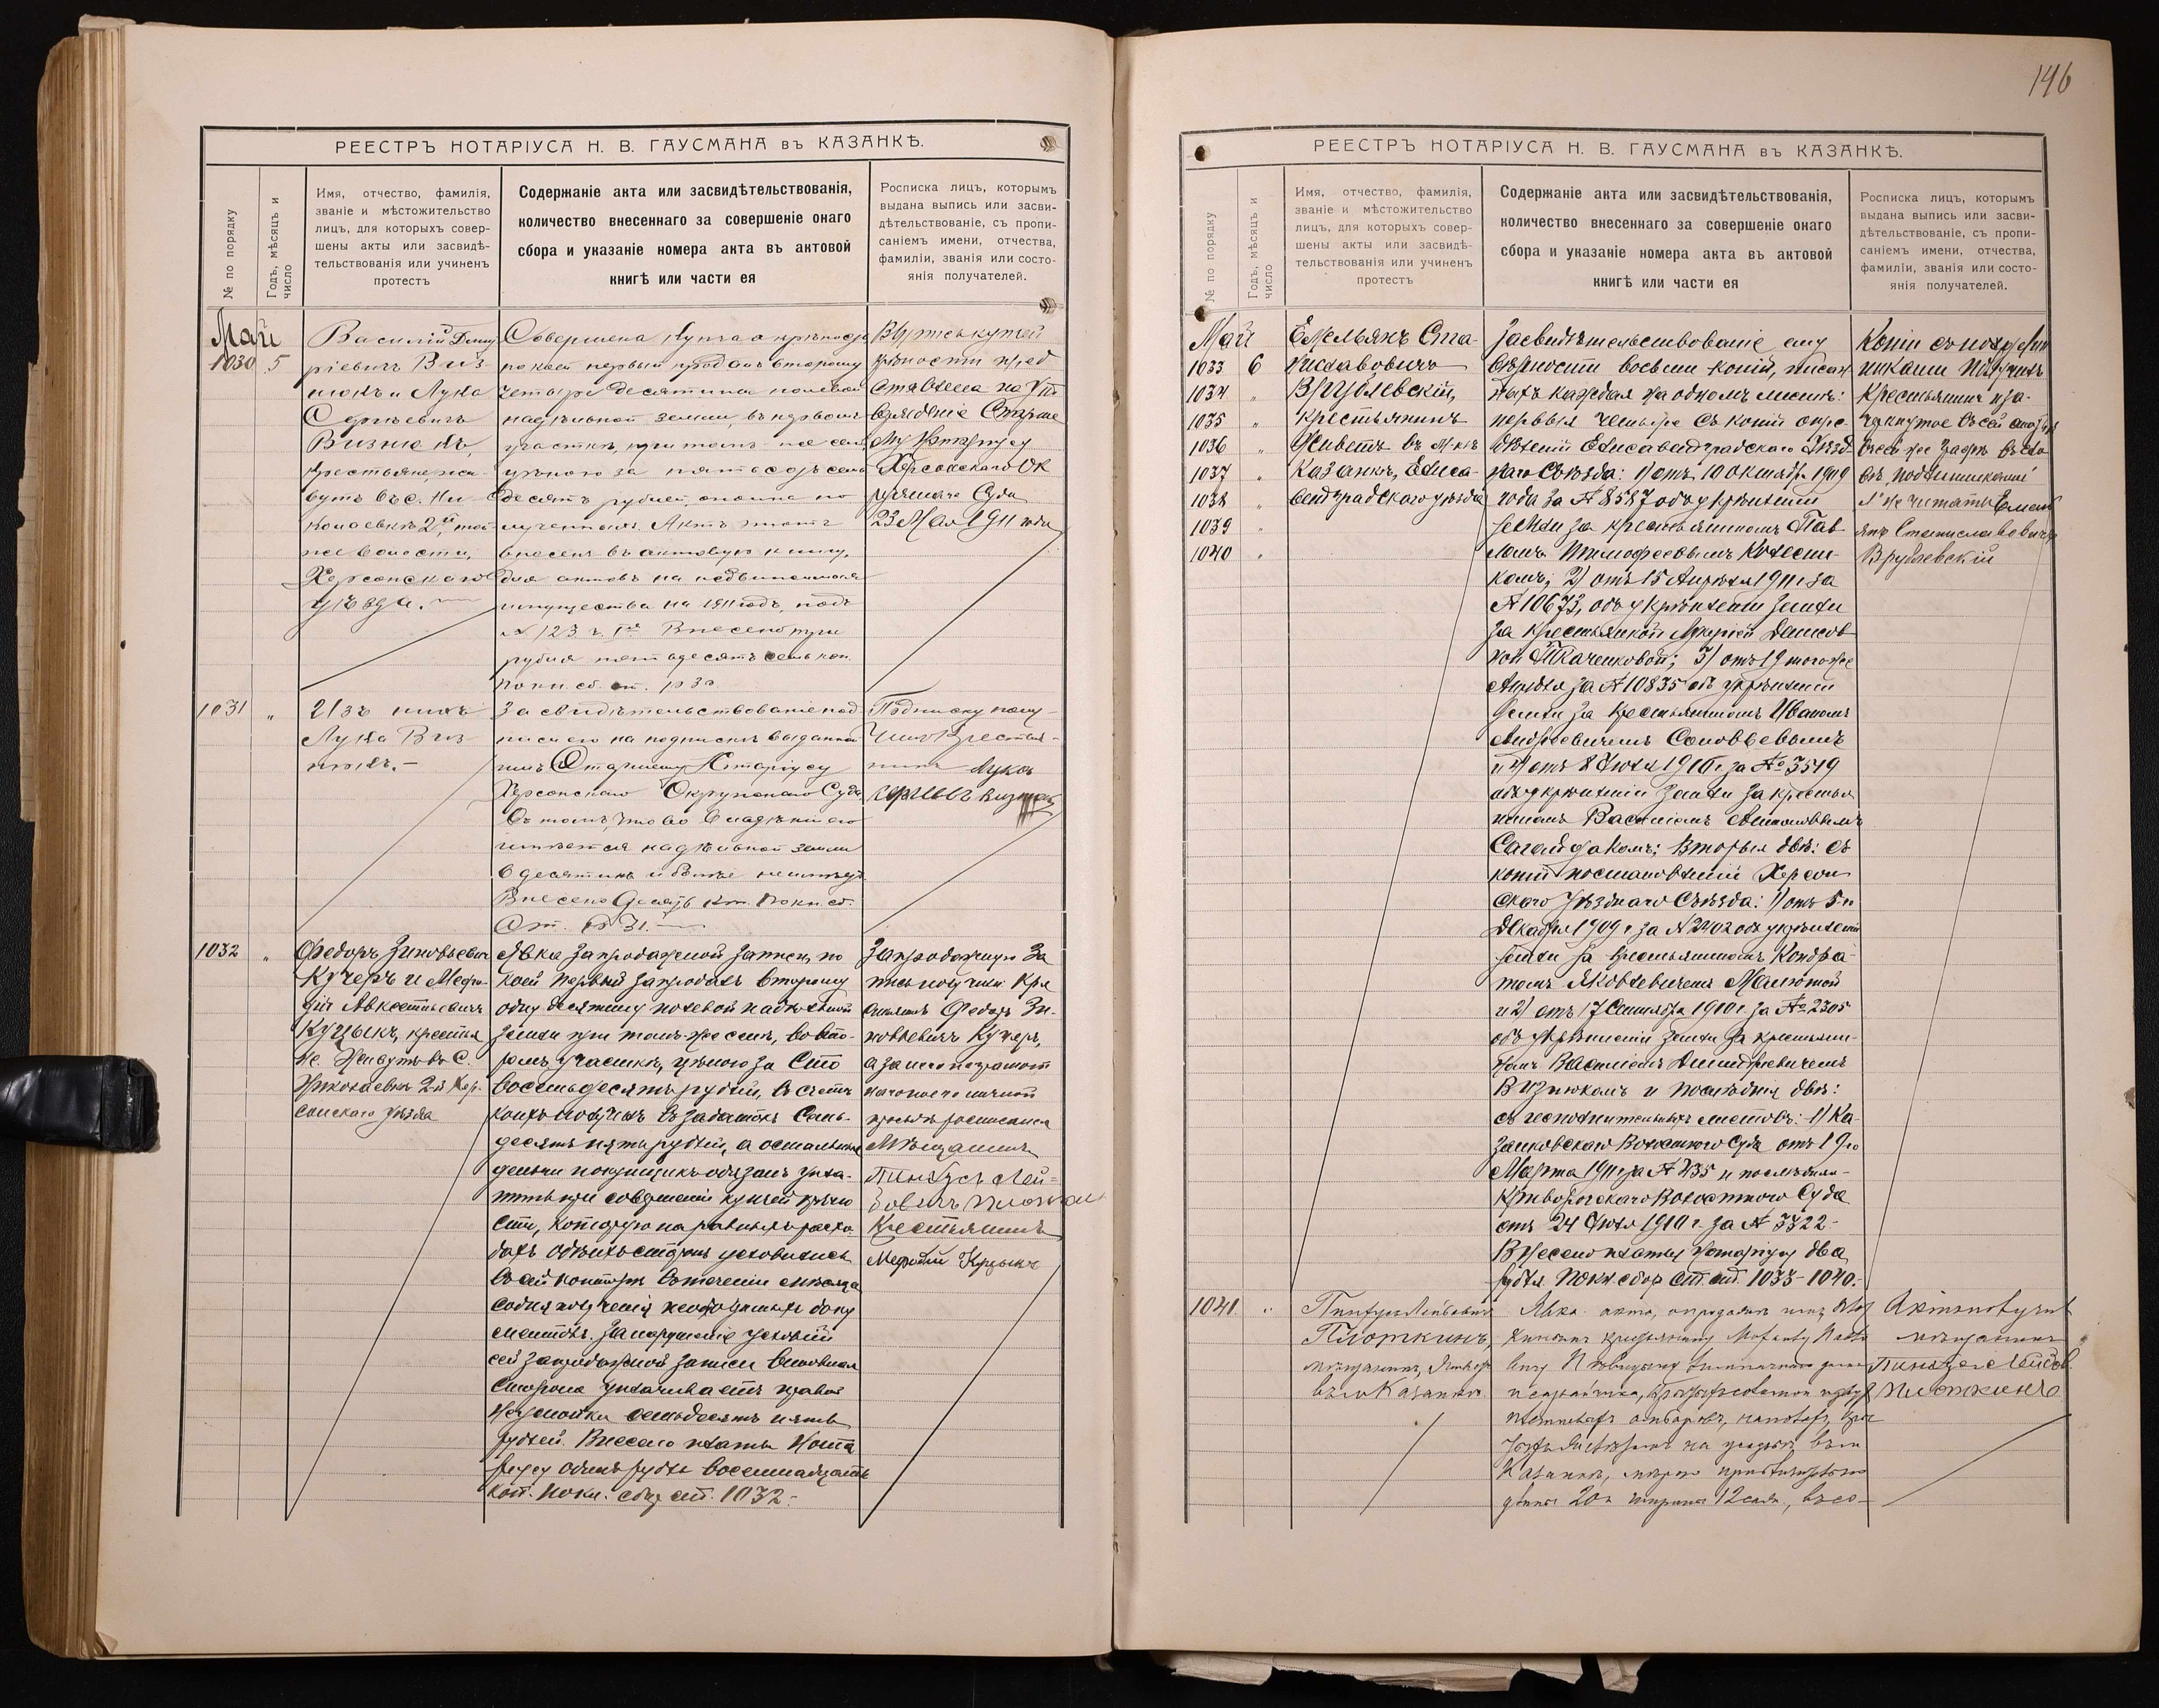 146
РЕЕСТРЪ НОТАРІУСА Н. В. ГАУСМАНА въ КАЗАНКѢ.
№ по порядку
Годъ, мѣсяцъ и
число
Имя, отчество, фамилія,
званіе и мѣстожительство
лицъ, для которыхъ совер-
шены акты или засвидѣ-
тельствованія или учиненъ
протестъ
Содержаніе акта или засвидѣтельствованія,
количество внесеннаго за совершеніе онаго
сбора и указаніе номера акта въ актовой
книгѣ или части ея
Росписка лицъ, которымъ
выдана выпись или засви-
дѣтельствованіе, съ пропи-
саніемъ имени, отчества,
фамиліи, званія или состо-
янія получателей.
Май
1030 5
Василій Дмит
ріевичъ Виз
нюкъ и Лука
Сергѣевичъ
Визнюкъ,
крестьяне, жи
вутъ въ с. Ни
колаевкѣ 2й, той
же волости,
Херсонскаго
уѣзда.
Совершена купчая крѣпость
по коей первый продалъ второму
четыре десятины полевой
надѣльной земли, въ первомъ
участкѣ при томъ же селѣ
цѣною за пятьсотъ семь
десятъ рублей, сполна по
лученныхъ. Актъ этотъ
внесенъ въ актовую книгу,
для актовъ на недвижимыя
имущества на 1911 годъ, подъ
№ 123 ч. Iя Внесено три
рубля пятьдесятъ семь коп.
по кн. сб. ст. 1030.
Выпись купчей
крѣпости пред
ставлена на утв
вержденіе Старше
му Нотаріусу
Херсонскаго Ок
ружнаго Суда
23 Мая 1911 года
1031 "
Изъ нихъ
Лука Виз
нюкъ.-
Засвидѣтельствованіе под
писи его на подпискѣ выданной
имъ Старшему Нотаріусу
Херсонскаго Окружнаго Суда
въ томъ, что во владѣніи его
имѣется надѣльной земли
6 десятинъ и болѣе не имѣетъ
Внесено десять коп. по кн. сб.
Ст. 1031.
Подписку полу-
чилъ Крестья-
нинъ Лука
Сергѣевъ Визнюкъ
1032 "
Федоръ Зиновьевич
Кучеръ и Мефо
дій Авксентьевичъ
Куцыкъ, крестья
не. Живутъ въ с.
Николаевкѣ 2-й Хер-
сонскаго уѣзда
Явка запродажной записи, по
коей первый запродалъ второму
одну десятину полевой надѣльной
земли при томъ же селѣ, во вто-
ромъ участкѣ, цѣною за Сто
восемьдесятъ рублей, въ счетъ
коихъ получилъ въ задатокъ Семь-
десятъ пять рублей, а остальныя
деньги покупщикъ обязанъ упла-
тить при совершеніи купчей крѣпо
сти, которую на равныхъ расхо
дахъ обѣихъ сторонъ условились
совершить въ теченіи мѣсяца
со дня полученія необходимыхъ доку
ментовъ. За нарушеніе условій
сей запродажной записи виновная
сторона уплачиваетъ правой
неустойки семьдесятъ пять
рублей. Внесено платы Нота
ріусу одинъ рубль восемнадцать
коп. по кн. сбор. ст. 1032.-
Запродажную За
пись получилъ Кре
стьянинъ Федоръ Зи-
новьевичъ Кучеръ,
а за него неграмот
наго по его личной
просьбѣ росписался
Мѣщанинъ
Пинхусъ Лей-
бовичъ Плоткинъ
Крестьянинъ
Мефодій Куцыкъ
РЕЕСТРЪ НОТАРІУСА Н. В. ГАУСМАНА въ КАЗАНКѢ.
№ по порядку
Годъ, мѣсяцъ и
число
Имя, отчество, фамилія,
званіе и мѣстожительство
лицъ, для которыхъ совер-
шены акты или засвидѣ-
тельствованія или учиненъ
протестъ
Содержаніе акта или засвидѣтельствованія,
количество внесеннаго за совершеніе онаго
сбора и указаніе номера акта въ актовой
книгѣ или части ея
Росписка лицъ, которымъ
выдана выпись или засви-
дѣтельствованіе, съ пропи-
саніемъ имени, отчества,
фамиліи, званія или состо-
янія получателей.
Май
1033 6
1034 "
1035 "
1036 "
1037 "
1038 "
1039 "
1040 "
Емельянъ Ста-
ниславовичъ
Врублевскій,
крестьянинъ
Живетъ въ м-кѣ
Казанкѣ, Елиса-
ветградскаго уѣзда
Засвидѣтельствованіе ему
вѣрности восьми копій, писан
ныхъ каждая на одномъ листѣ:
первыя четыре съ копій опре-
дѣленій Елисаветградскаго Уѣзд
наго Съѣзда: 1) отъ 10 Октября 1909
года за № 8587 объ укрѣпленіи
земли за крестьяниномъ Пав
ломъ Тимофеевымъ Колесни-
комъ; 2) отъ 15 Апрѣля 1911 г. за
№ 10673, объ укрѣпленіи земли
за крестьянкой Денисов
ной Ткаченковой; 3) отъ 19 того же
Апрѣля за № 10835 объ укрѣпленіи
земли за Крестьяниномъ Иваномъ
Андреевичемъ Соловьевымъ
и 4) отъ 8 Іюля 1910 г. за № 3549
объ укрѣпленіи земли за крестья
ниномъ Василіемъ
Сагайдакомъ; вторыя двѣ: съ
копій постановленій Херсон
скаго Уѣзднаго Съѣзда: 1) отъ 5-го
Декабря 1909 г. за № 2402 объ укрѣпленіи
земли за крестьяниномъ Кондра-
томъ Яковлевичемъ Малютой
и 2) отъ 17 Сентября 1910 г. за № 2305
объ укрѣпленіи земли за крестьяни-
номъ Василіемъ Дмитріевичемъ
Визнюкомъ и послѣднія двѣ:
съ исполнительныхъ листовъ: 1) Ка-
занковскаго Волостного Суда отъ 19го
Марта 1911 г. за № 435 и
Криворожскаго Волостного Суда
отъ 24 Іюля 1910 г. за № 3322-
Внесено платы Нотаріусу два
рубля. По кн. сбор. ст. ст. 1033-1040.-
Копіи съ подлин
никами получилъ
Крестьянинъ
въ сей
подлинниками
Не читать Емель
янъ Станиславовичъ
Врублевскій
1041 "
Пинхусъ Лейбовичъ
Плоткинъ,
мѣщанинъ, Живетъ
въ м. Казанкѣ
Явка акта, о продажѣ имъ
крестьянину
Казанкѣ, мѣрою приблизительно
длина 20 и ширина 12 саж., въ со-
Актъ получилъ
мѣщанинъ
Пинхусъ Лейбов.
Плоткинъ